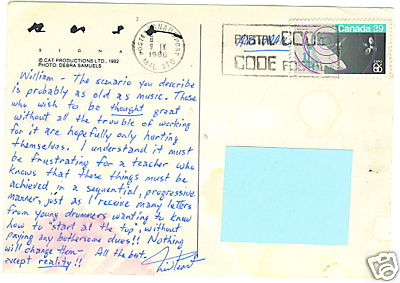 SIGNA
© CAT PRODUCTIONS LTD., 1982
PHOTO: DEBRA SAMUELS
William - The scenario you describe
is probably as old as music. Those
who wish to be thought great
without all the trouble of working
for it are hopefully only hurting
themselves. I understand it must
be frustrating for a teacher who
knows that these things must be
achieved in a sequential, progressive
manner, just as I receive many letters
from young drummers wanting to know
how to "start at the top", without
paying any bothersome dues!! Nothing
will change them - All the best,
except reality!!
1986
POSTAL CODE
CODE POSTAL
Canada 39
86
ebay